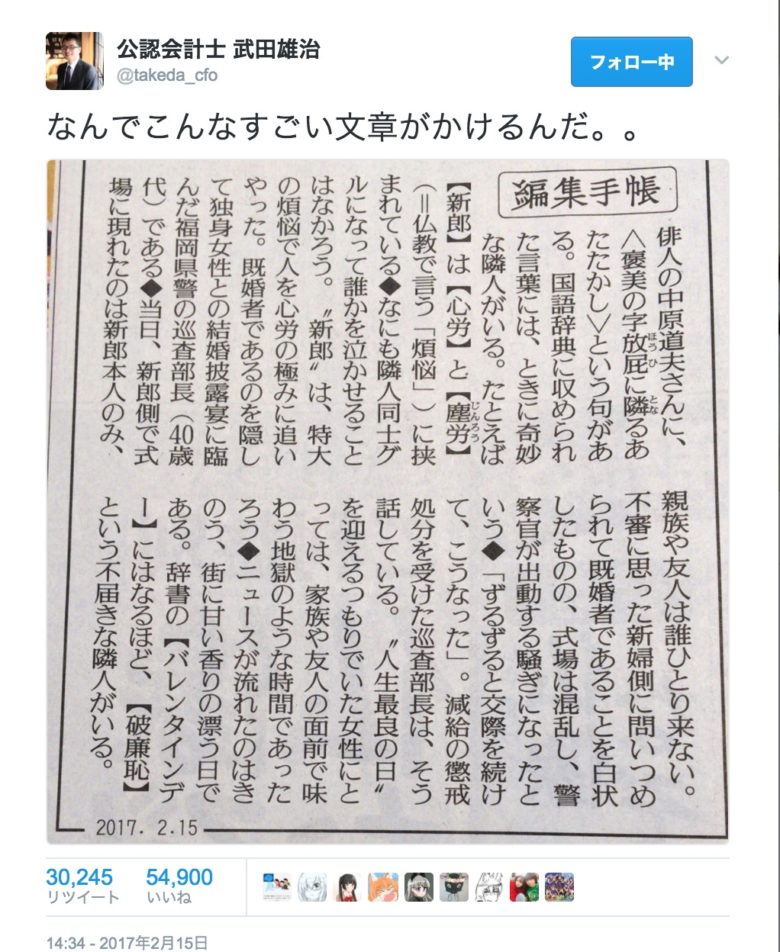 公認会計士 武田雄治
@takeda_cfo
フォロー中
なんでこんなすごい文章がかけるんだ。。
編集手帳
俳人の中原道夫さんに、
〈褒美の字放屁に隣るあ
たたかし〉という句があ
る。国語辞典に収められ
た言葉には、ときに奇妙
な隣人がいる。たとえば
【新郎】は【心労】と【塵労】
(＝仏教で言う「煩悩」)に挟
まれている◆なにも隣人同士グ
ルになって誰かを泣かせること
はなかろう。〝新郎〟は、特大
の煩悩で人を心労の極みに追い
やった。既婚者であるのを隠し
て独身女性との結婚披露宴に臨
んだ福岡県警の巡査部長(40歳
代)である◆当日、新郎側で式
場に現れたのは新郎本人のみ、
親族や友人は誰ひとり来ない。
不審に思った新婦側に問いつめ
られて既婚者であることを白状
したものの、式場は混乱し、警
察官が出動する騒ぎになったと
いう◆「ずるずると交際を続け
て、こうなった」。減給の懲戒
処分を受けた巡査部長は、そう
話している。〝人生最良の日〟
を迎えるつもりでいた女性にと
っては、家族や友人の面前で味
わう地獄のような時間であった
ろう◆ニュースが流れたのはき
のう、街に甘い香りの漂う日で
ある。辞書の【バレンタインデ
ー】にはなるほど、【破廉恥】
という不届きな隣人がいる。
2017. 2.15
30,245 54,900
リツイート いいね
14:34 - 2017年2月15日